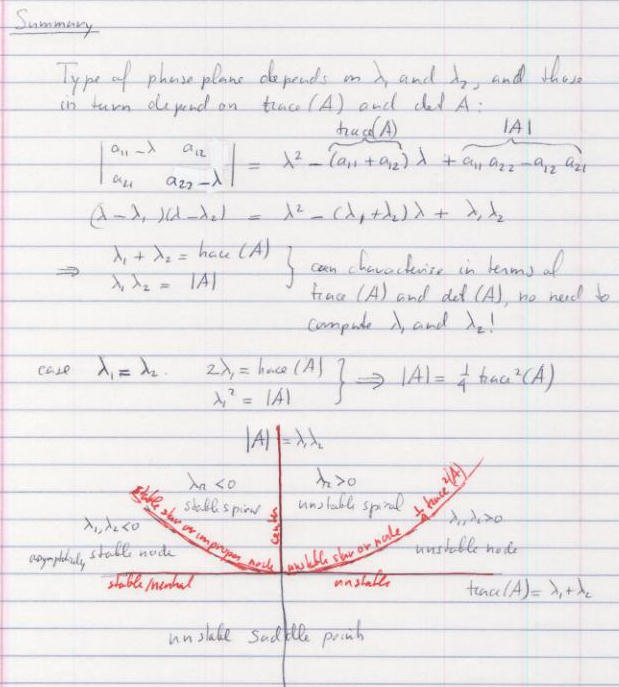 Summary
Type of phase plane depends on λ₁ and λ₂, and those
in turn depend on trace(A) and det A:
trace(A) |A|
| a₁₁ - λ  a₁₂ |
| a₂₁  a₂₂ - λ | = λ² - (a₁₁ + a₁₂) λ + a₁₁ a₂₂ - a₁₂ a₂₁
(λ - λ₁)(λ - λ₂) = λ² - (λ₁ + λ₂) λ + λ₁ λ₂
⇒ λ₁ + λ₂ = trace(A)
λ₁ λ₂ = |A|
} can characterise in terms of
trace(A) and det(A), no need to
compute λ₁ and λ₂!
case λ₁ = λ₂. 2λ₁ = trace(A)
λ₁² = |A|
} ⇒ |A| = ¼ trace²(A)
|A| = λ₁λ₂
λr < 0
stable spiral
λr > 0
unstable spiral
¼ trace²(A)
stable star or improper node
center
unstable star or node
λ₁, λ₂ < 0
asymptotically stable node
λ₁, λ₂ > 0
unstable node
stable/neutral
unstable
trace(A) = λ₁ + λ₂
unstable saddle points